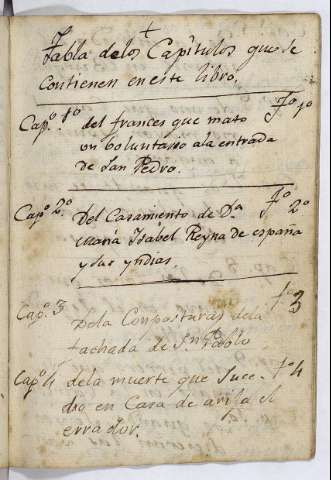 +
Tabla delos Capitulos que se
contienen en este libro.
Capº. 1º del frances que mato Fº 1º
un boluntario ala entrada
de San Pedro.
Capº 2º Del Casamiento de Dª Fº 2º
Maria Isabel Reyna de españa
y sus yndias
Capº. 3 Dela Conposturas dela Fº 3
fachada de Sn Pablo
Capº 4 dela muerte que Suce- Fº 4
dio en Casa de arila el
errador.